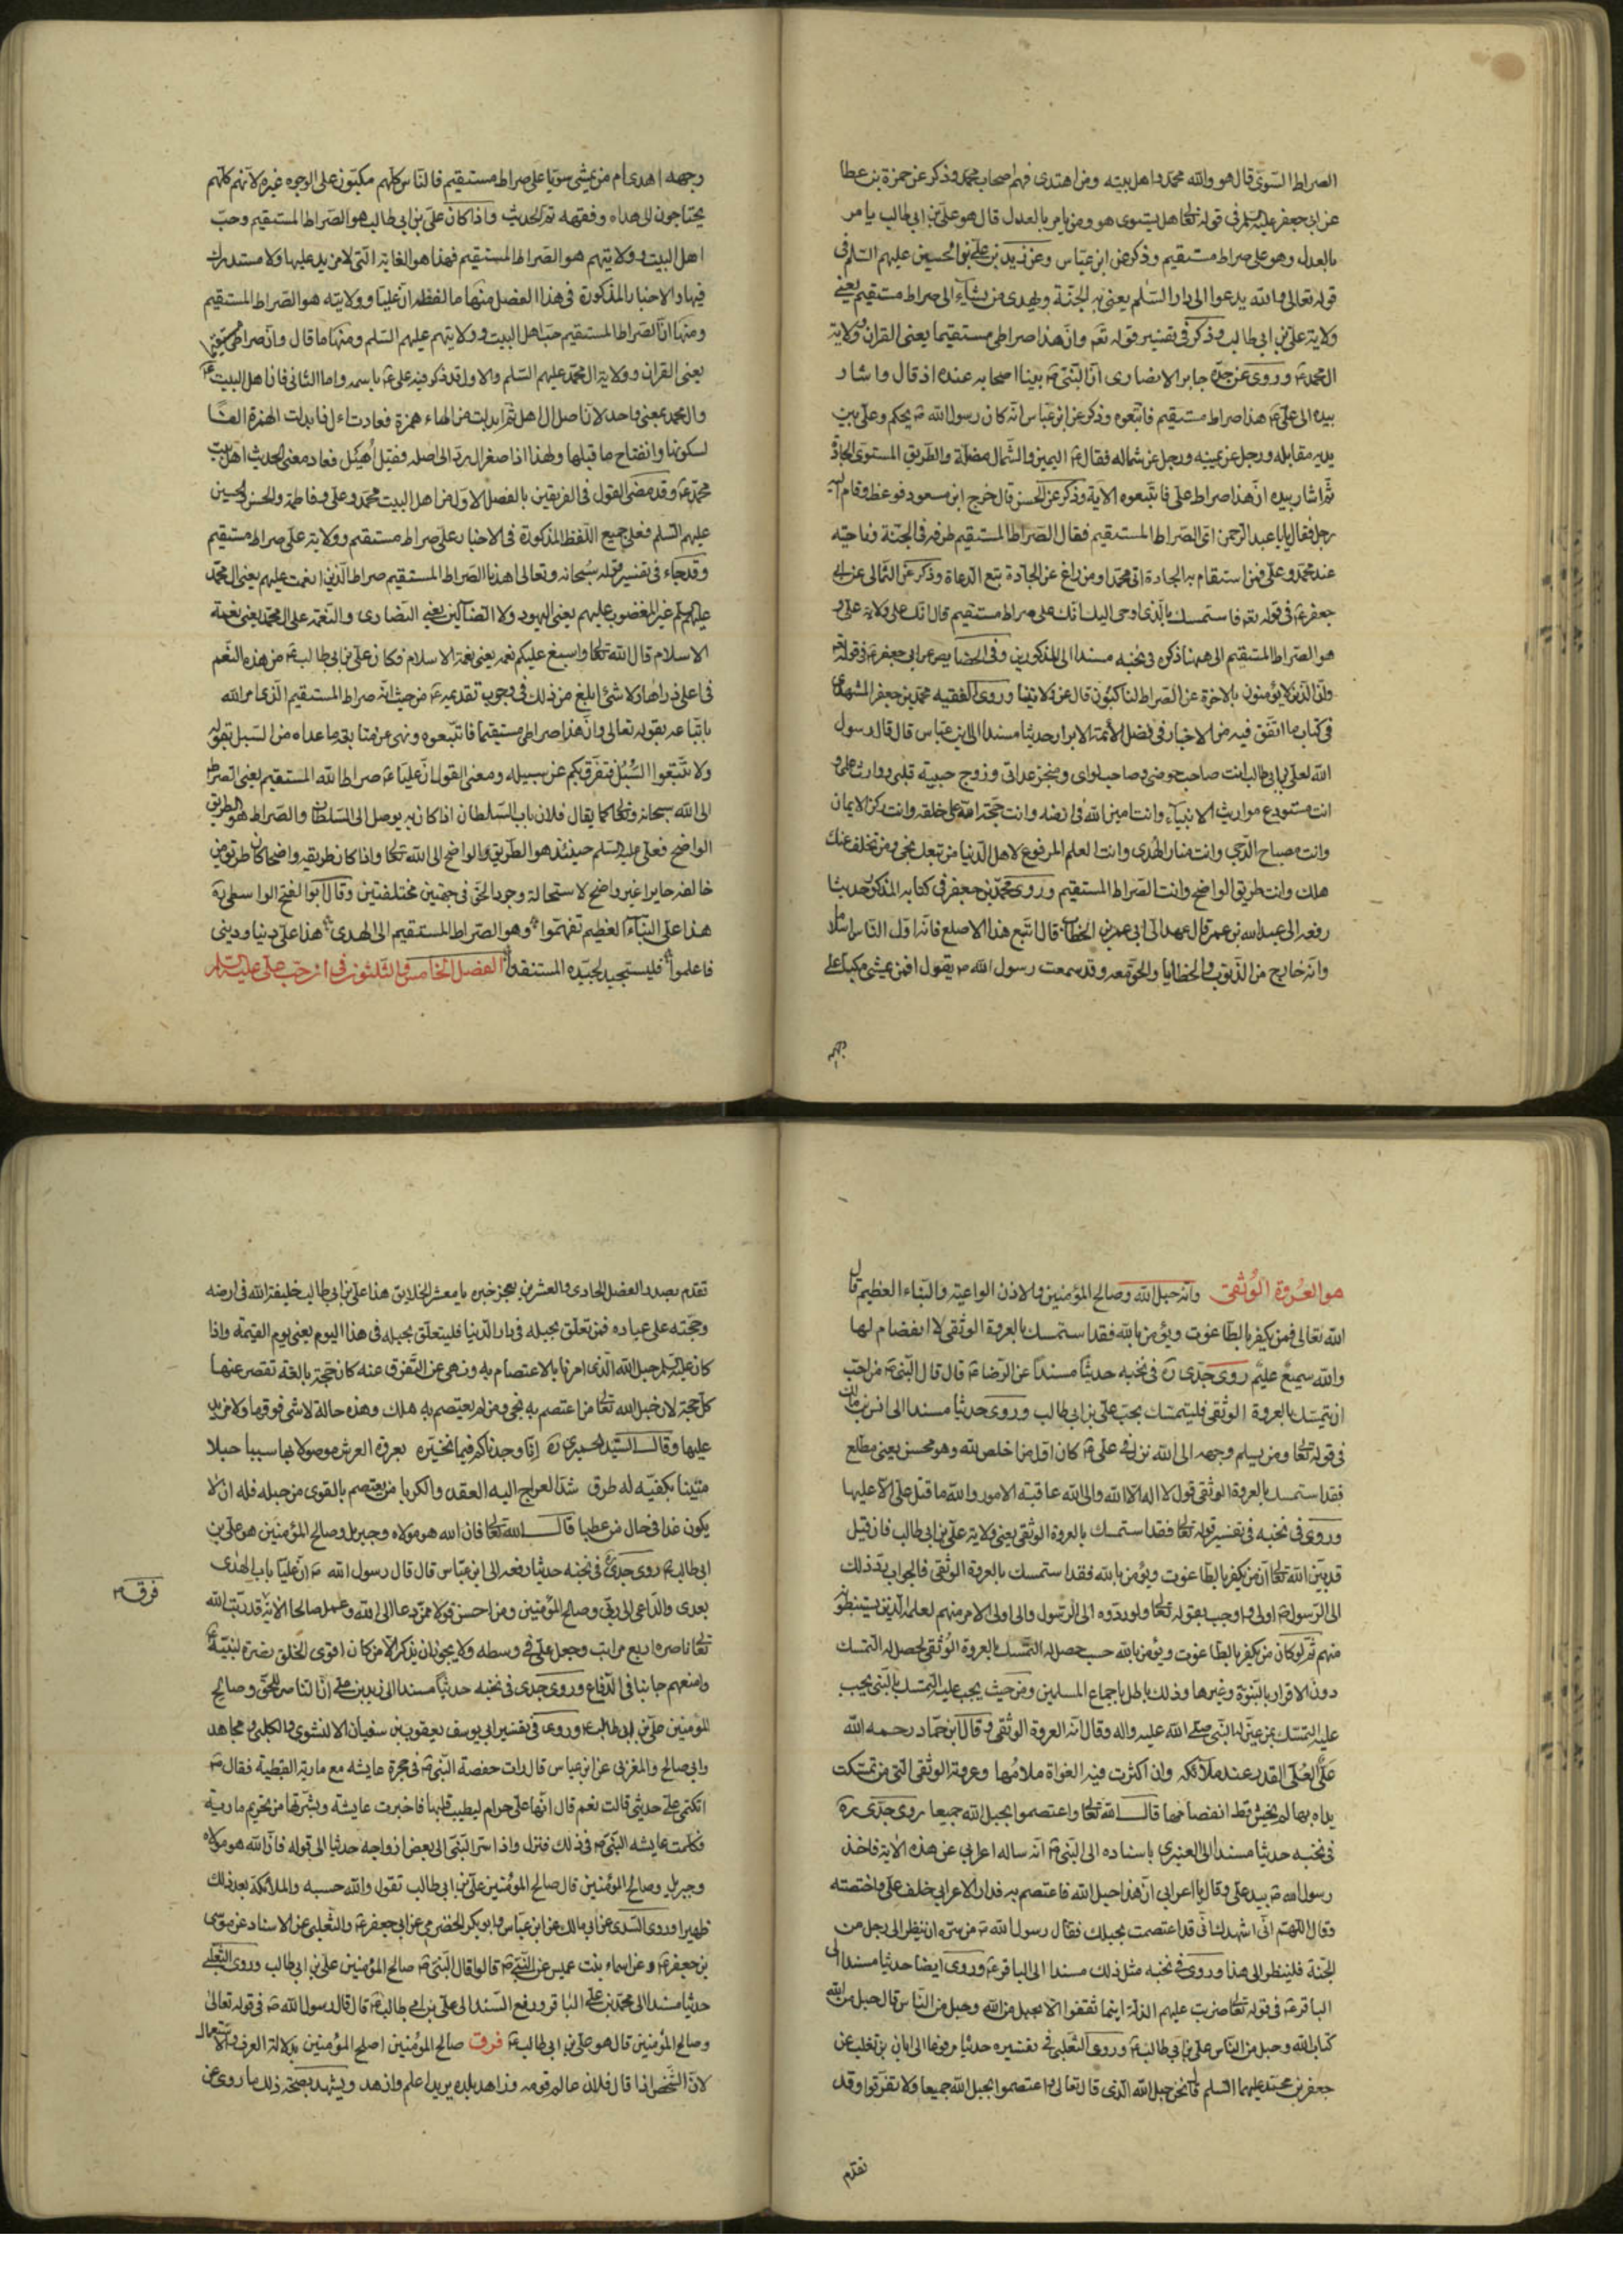 الصراط السّوىّ قال هو والله محمد واهل بيته ومن اهتدى فهم اصحاب محمد وذكر عن حمزة بن عطا
عن ابى جعفر عليه السلم فى قوله تعالى هل يستوى هو ومن يامر بالعدل قال هو علىّ بن ابى طالب يامر
بالعدل وهو على صراط مستقيم وذكر عن ابن عبّاس وعن زيد بن علىّ بن الحسين عليهم السّلم فى
قوله تعالى والله يدعوا الى دار السّلم يعنى به الجنّة ويهدى من يشآء الى صراط مستقيم يعنى
ولاية علىّ بن ابى طالب وذكر فى تفسير قوله تعـ وانّ هذا صراطى مستقيما يعنى القران وولاية
ال محمد ع وروى عن جدّه جابر الانصارى انّ النّبىّ ص بينا اصحابه عنده اذ قال واشار
بيده الى علىّ ع هذا صراط مستقيم فاتّبعوه وذكر عن ابن عبّاس انّه كان رسول الله ص يحكم وعلىّ بين
يديه مقابله ورجل عن يمينه ورجل عن شماله فقال ص اليمين والشّمال مضلّة والطّريق المستوى الجادّة
ثمّ اشار بيده انّ هذا صراط علىّ فاتّبعوه الاية وذكر عن الحسن قال خرج ابن مسعود فوعظ فقام اليه
رجل فقال يا ابا عبد الرّحمن اين الصّراط المستقيم فقال الصّراط المستقيم طرفه فى الجنّة وناحيته
عند محمّد وعلىّ فمن استقام به الجادة اتى محمّدا ومن زاغ عن الجادّة تبع الدّعاة وذكر عن الثّمالى عن ابى
جعفر ع فى قوله تعـ فاستمسك بالّذى اوحى اليك انّك على صراط مستقيم قال انّك على ولاية علىّ و
هو الصّراط المستقيم الى ههنا ذكره فى نخبه مسندا الى المذكورين وفى الخصايص عن ابى جعفر ع فى قوله تعـ
وانّ الّذين لا يؤمنون بالاخرة عن الصّراط لناكبون قال عن ولايتنا وروى الفقيه محمّد بن جعفر المشهدى
فى كتاب ما اتّفق فيه من الاخبار فى فضل الأئمّة الابرار حديثا مسندا الى ابن عبّاس قال قال رسول
الله لعلىّ بن ابى طالب انت صاحب حوضى وصاحب لواى ومنجز عداتى وزوج حبيبة قلبى ووارث علمى و
انت مستودع مواريث الانبيآء وانت امين الله فى ارضه وانت حجّة الله على خلقه وانت ركن الايمان
وانت مصباح الدّجى وانت منار الهُدى وانت العلم المرفوع لاهل الدّنيا من تبعك نجى ومن تخلّف عنك
هلك وانت طريق الواضح وانت الصّراط المستقيم وروى محمّد بن جعفر فى كتابه المذكور حديثا
رفعه الى عبد الله بن عمر قال عهد الى ابى عمر بن الخطاب قال اتّبع هذا الاصلع فانّه اوّل النّاس اسلاما
وانّه خارج من الذّنوب والخطايا والحقّ معه وقد سمعت رسول الله ص يقول افمن يمشى مكبّا على
وجهه
وجهه اهدى ام من يمشى سويّا على صراط مستقيم فالنّاس كلّهم مكبّون على الوجوه غيره لانّهم كلّهم
يحتاجون الى هداه وفقهه تمّ الحديث واذا كان علىّ بن ابى طالب هو الصّراط المستقيم وحبّ
اهل البيت وولايتهم هو الصّراط المستقيم فهذا هو الغاية الّتى لا مزيد عليها ولا مستدرك
فيها والاخبار المذكورة فى هذا الفصل منها ما لفظه انّ عليّا وولايته هو الصّراط المستقيم
ومنها انّ الصّراط المستقيم حبّ اهل البيت وولايتهم عليهم السّلم ومنها ما قال وانّ صراطى مستقيما
يعنى القران وولاية ال محمّد عليهم السّلم والاول قد ذكر فيه على ع باسمه واما الثانى فانّ اهل البيت ع
وال محمد بمعنى واحد لانّ اصل ال اهل ثمّ ابدلت من الهاء همزة فعادت ءال فابدلت الهمزة الفًا
لسكونها وانفتاح ما قبلها ولهذا اذا صغّر ال ردّ الى اصله فقيل أُهَيل فعاد معنى الحديث اهل بيت
محمّد ع وقد مضى القول فى الفريقين بالفصل الاوّل من اهل البيت محمّد وعلى وفاطمة والحسن والحسين
عليهم السّلم فعلى جميع اللّفظ المذكورة فى الاخبار على صراط مستقيم وولايته على صراط مستقيم
وقد جاء فى تفسير قوله سُبحانه وتعالى اهدنا الصّراط المستقيم صراط الّذين انعمت عليهم يعنى ال محمّد
عليهم السلم غير المغضوب عليهم يعنى اليهود ولا الضّآلّين يعنى النّصارى والنّعمة على ال محمّد يعنى نعمة
الاسلام قال الله تعالى واسبغ عليكم نعمه يعنى نعمة الاسلام فكان علىّ بن ابى طالب ع من هذه النّعم
فى اعلى ذراها ولا شئ ابلغ من ذلك فى وجوب تقديمه ع من حيث انّه صراط المستقيم الّذى امر الله
باتّباعه بقوله تعالى وانّ هذا صراطى مستقيما فاتّبعوه ونهى عن متابعة ما عداه من السّبل بقوله
ولا تتّبعوا السُّبُل فتفرّق بكم عن سبيله ومعنى القول انّ عليّا ع صراط الله المستقيم يعنى الصراط
الى الله سبحانه وتعالى كما يقال فلان باب السّلطان اذا كان به يوصل الى السّلطان والصّراط هو الطريق
الواضح فعلى عليه السّلم حينئذ هو الطّريق والواضح الى الله تعالى واذا كان طريقه واضحا كان طريق من
خالفه حايرا غير واضح لاستحالة وجود الحقّ فى جهتين مختلفتين وقال ابو الفتح الواسطى ره
هذا علىّ النّبآء العظيم تفهّموا وهو الصّراط المستقيم الى الهدى هذا علىّ دنيا ودينى
فاعلموا فليستجيد لجيّده المستنقد الفصل الخامس والثلثون فى انّ حبّ علىّ عليه السّلم
هو العُروة الوُثقى وانّه حبل الله وصالح المؤمنين والاذن الواعية والنّبآء العظيم قال
الله تعالى فمن يكفر بالطّاغوت ويؤمن بالله فقد استمسك بالعروة الوثقى لا انفصام لها
والله سميعٌ عليم روى جدّى ره فى نخبه حديثًا مسندًا عن الرّضا ع قال قال النّبى ص من احبّ
ان يتمسّك بالعروة الوثقى فليتمسّك بحبّ علىّ بن ابى طالب وروى حديثا مسندا الى انس بن مالك
فى قوله تعالى ومن يسلم وجهه الى الله نزل فى علىّ ع كان اوّل من اخلص لله وهو محسن يعنى مطلع
فقد استمسك بالعروة الوثقى قول لا اله الا الله والى الله عاقبة الامور والله ما قتل علىّ الّا عليها
وروى فى نخبه فى تفسير قوله تعالى فقد استمسك بالعروة الوثقى يعنى ولاية علىّ بن ابى طالب فان قيل
قد بيّن الله تعالى انّ من يكفر بالطّاغوت ويؤمن بالله فقد استمسك بالعروة الوثقى فالجواب ردّ ذلك
الى الرّسول ص اولى واوجب بقوله تعالى ولو ردّوه الى الرّسول والى اولى الامر منهم لعلمه الّذين يستنبطونه
منهم ثمّ لو كان من يكفر بالطّاغوت ويؤمن بالله حسب حصل له التّمسّك بالعروة الوُثقى لحصل له التمسّك
دون الاقرار بالنّبوّة وغيرها وذلك باطل باجماع المسلمين ومن حيث يجب عليه التمسّك بالنّبىّ يجب
عليه التمسّك بمن عيّن له النّبى صلّى الله عليه واله وقال انّه العروة الوثقى وقال ابن حمّاد رحمه الله
علىٌّ العُلى القدر عند ملآئكه وان اكثرت فيه الغواة ملامُها وعروته الوثقى التى من تمسّكت
يداه بها لم يخش قطّ انفصامها قال الله تعالى واعتصموا بحبل الله جميعا روى جدّى ره
فى نخبه حديثا مسندا الى العنبرى باسناده الى النّبى ص انّه ساله اعرابى عن هذه الاية فاخذ
رسول الله ص بيد علىّ وقال يا اعرابى انّ هذا حبل الله فاعتصم به فدار الاعرابى خلف علىّ واختصنه
وقال اللّهمّ انّى اشهدك انّى قد اعتصمت بحبلك فقال رسول الله ص من سرّه ان ينظر الى رجل من
الجنّة فلينظر الى هذا وروى فى نخبه مثل ذلك مسندا الى الباقر ع وروى ايضا حديثا مسندا الى
الباقر ع فى قوله تعالى ضربت عليهم الذلّة اينما ثقفوا الّا بحبل من الله وحبل من النّاس قال حبل من الله
كتاب الله وحبل من النّاس علىّ بن ابى طالب ع وروى الثعلبى فى تفسيره حديثا مرفوعا الى ابان بن تغلب عن
جعفر بن محمّد عليهما السّلم قال نحن حبل الله الّذى قال تعالى واعتصموا بحبل الله جميعا ولا تفرّقوا وقد
تقدّم
تقدّم بصدر الفصل الحادى والعشرين بعجز خبره يا معشر الخلايق هذا علىّ بن ابى طالب خليفة الله فى ارضه
وحجّته على عباده فمن تعلّق بحبله فى دار الدّنيا فليتعلّق بحبله فى هذا اليوم يعنى يوم القيمة واذا
كان عليه السلم حبل الله الّذى امرنا بالاعتصام به ونهى عن التّفرّق عنه كان حجّة بالغة تقصر عنها
كلّ حجّة لانّ حبل الله تعالى من اعتصم به نجى ومن لم يعتصم به هلك وهذه حالة لا شىء فوقها ولا مزيد
عليها وقال السّيّد الحميرى ره انّا وجدناكم فيما نخبّره بعروة العرش موصولا بها سببا حبلا
متينا بكفّيه له طرق شدّ العراج اليه العقد والكربا من يعتصم بالقوى من حبله فله ان لا
يكون غدا فى حال من عطبا قال الله تعالى فانّ الله هو مولاه وجبريل وصالح المؤمنين هو علىّ بن
ابى طالب ع روى جدّى ره فى نخبه حديثا رفعه الى ابن عبّاس قال قال رسول الله ص انّ عليّا باب الهدى
بعدى والدّاعى الى ربّى وصالح المؤمنين ومن احسن قولا ممّن دعا الى الله وعمل صالحا الاية قد رتّب الله
تعالى ناصره اربع مراتب وجعل علىّ فى وسطه ولا يجوز ان يذكر الّا من كان اقوى الخلق نصرة لنبيّه
وامنعهم جانبا فى الدّفاع وروى جدى فى نخبه حديثًا مسندا الى زيد بن علىّ انّ النّاصر للحقّ وصالح
المؤمنين علىّ بن ابى طالب ع وروى فى تفسير ابى يوسف يعقوب بن سفيان النسوى والكلبى ومجاهد
وابى صالح والمغربى عن ابن عباس قال رات حفصة النّبى ص فى حجرة عايشه مع مارية القبطية فقال ص
اتكتمى علىّ حديثى قالت نعم قال انّها علىّ حرام ليطيب قلبها فاخبرت عايشة وبشّرتها من تحريم مارية
فكلمت عايشه النّبى ص فى ذلك فنزل واذ اسرّ النّبى الى بعض ازواجه حديثا الى قوله فانّ الله هو مولاه
وجبريل وصالح المؤمنين قال صالح المؤمنين علىّ بن ابى طالب تقول والله حسبه والملآئكة بعد ذلك
ظهيرا وروى السّدى عن ابى مالك عن ابن عبّاس وابو بكر الحضرمى عن ابى جعفر ع والثّعلبى عن الاسناد عن موسى
بن جعفر ع وعن اسماء بنت عميس عن النّبى ص قالوا قال النّبى ص صالح المؤمنين علىّ بن ابى طالب وروى الثعلبى
حديثا مسندا الى محمّد بن علىّ الباقر ورفع السّند الى على بن ابى طالب ع قال قال رسول الله ص فى قوله تعالى
وصالح المؤمنين قال هو علىّ بن ابى طالب ع فرق صالح المؤمنين اصلح المؤمنين بدلالة العرف والاستعمال
لانّ الشّخص اذا قال فلان عالم قومه وزاهد بلده يريد اعلم وازهد ويشهد بصحّة ذلك ما روى عن
فرق